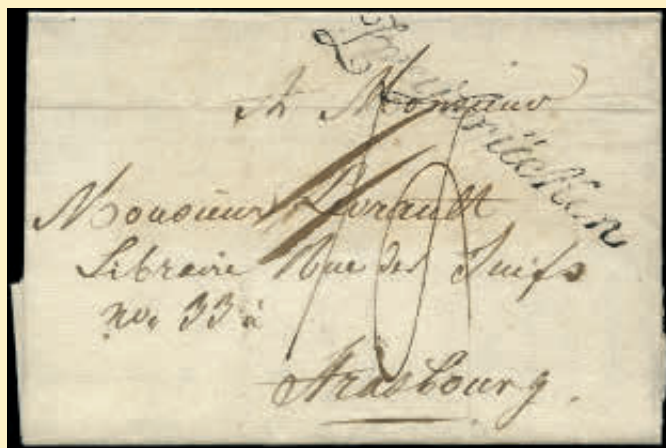 Zweybrücken
A Monsieur
Monsieur Levrault
Libraire Rue des Juifs
no. 33 à
Strasbourg.